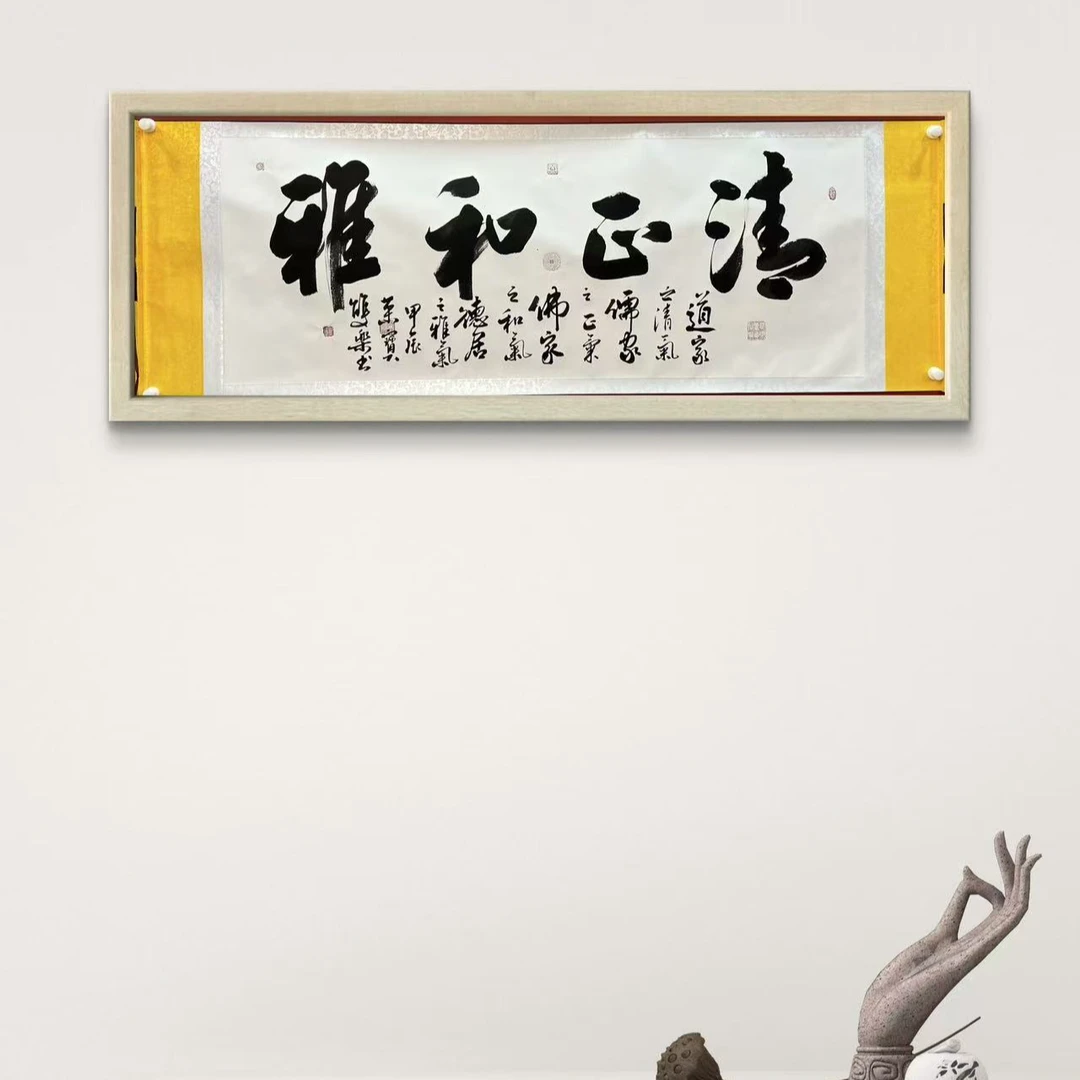 清正和雅
道家
之清氣
儒家
之正氣
佛家
之和氣
德居
之雅氣
甲辰